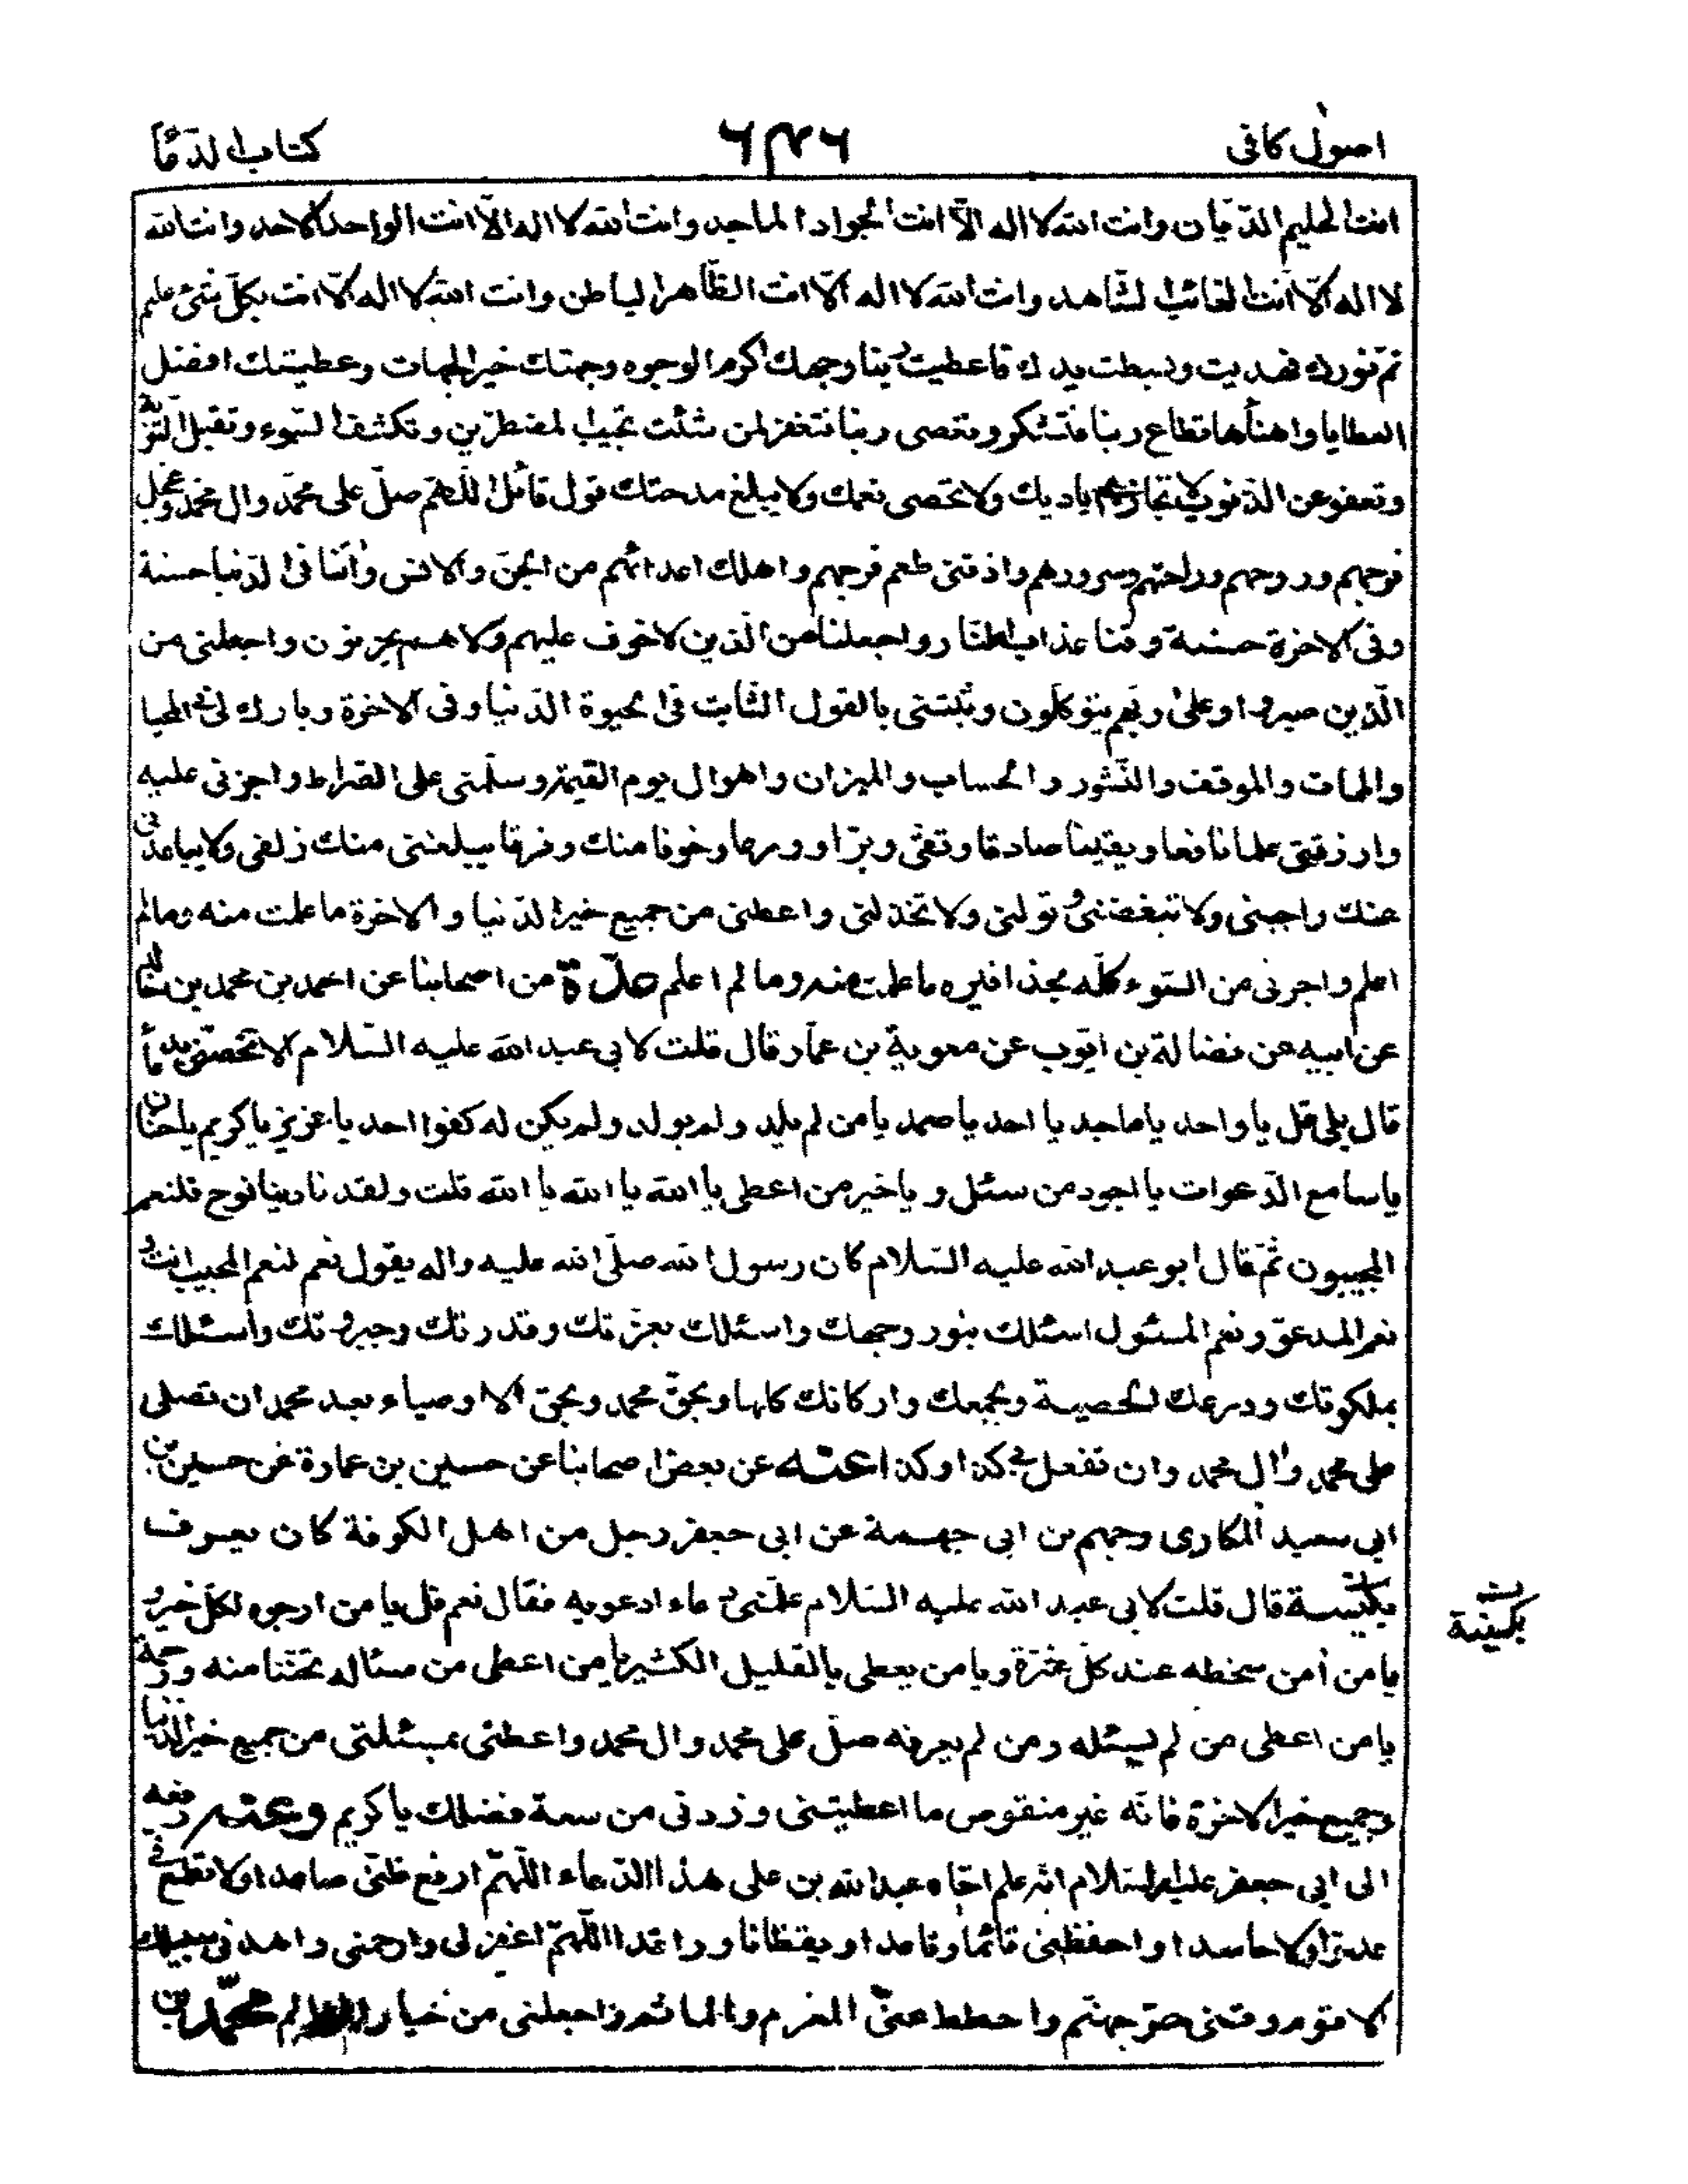 اصول كافى ٦٣٦ كتاب الدعأ
انت الحليم الديان وانت الله لا اله الّا انت الجواد الماجد وانت الله لا اله الّا انت الواحد الاحد وانت الله
لا اله الّا انت الغائب الشّاهد وانت الله لا اله الّا انت الظّاهر الباطن وانت الله لا اله الّا انت بكلّ شئ عليم
تمّ نورك فهديت وبسطت يدك فاعطيت ربنا وجهك اكرم الوجوه وجهتك خير الجهات وعطيتك افضل
العطايا واهنأها تطاع ربنا فتشكر وتعصى ربنا فتغفر لمن شئت تجيب المضطرّين وتكشف السّوء وتقبل التّوبة
وتعفو عن الذنوب لا تجازى اياديك ولا تحصى نعمك ولا يبلغ مدحتك قول قائل اللّهمّ صلّ على محمّد وال محمّد وعجل
فرجهم وروحهم وراحتهم وسرورهم واذقنى طعم فرجهم واهلك اعدائهم من الجنّ والانس واٰتنا فى الدّنيا حسنة
وفى الاخرة حسنة وقنا عذاب النّار واجعلنا من الّذين لا خوف عليهم ولا هم يحزنون واجعلنى من
الّذين صبروا وعلىٰ ربّهم يتوكّلون وثبّتنى بالقول الثّابت فى الحيوة الدّنيا وفى الاخرة وبارك لى فى المحيا
والممات والموقف والنّشور والحساب والميزان واهوال يوم القيمة وسلّمنى على الصّراط واجزنى عليه
وارزقنى علما نافعا ويقينا صادقا وتقى وبرّا وورعا وخوفا منك وفرقا يبلغنى منك زلفى ولا يباعدنى
عنك واحببنى ولا تبغضنى وتولنى ولا تخذلنى واعطنى من جميع خير الدّنيا والاخرة ما علمت منه وما لم
اعلم واجرنى من السّوء كلّه بحذافيره ما علمت منه وما لم اعلم عدّة من اصحابنا عن احمد بن محمد بن خالد
عن ابيه عن فضالة بن ايّوب عن معوية بن عمّار قال قلت لابى عبد الله عليه السّلام الا تخصّنى بدعأ
قال بلى قل يا واحد يا ماجد يا احد يا صمد يا من لم يلد ولم يولد ولم يكن له كفوا احد يا عزيز يا كريم يا حنّان
يا سامع الدّعوات يا اجود من سئل ويا خير من اعطى يا الله يا الله يا الله قلت ولقد نادينا نوح فلنعم
المجيبون ثمّ قال ابو عبد الله عليه السّلام كان رسول الله صلّى الله عليه واله يقول نعم لنعم المجيب انت و
نعم المدعوّ ونعم المسئول اسئلك بنور وجهك واسئلك بعزّتك وقدرتك وجبروتك واسئلك
بملكوتك ودرعك الحصينة وبجمعك واركانك كلها وبحقّ محمد وبحق الاوصياء بعد محمد ان تصلى
على محمد واٰل محمد وان تفعل بى كذا وكذا عنه عن بعض اصحابنا عن حسين بن عمارة عن حسين بن
ابى سعيد المكارى وجهم بن ابى جهمة عن ابى جعفر رجل من اهل الكوفة كان يعرف
بكنيسة قال قلت لابى عبد الله عليه السّلام علّمنى دعاء ادعو به فقال نعم قل يا من ارجوه لكلّ خير و
بكينة
يا من اٰمن سخطه عند كلّ عثرة ويا من يعطى بالقليل الكثير يا من اعطى من سئاله تحننا منه ورحمة
يا من اعطى من لم يسئله ومن لم يعرفه صلّ على محمد وال محمد واعطنى بمسئلتى من جميع خير الدنيا
وجميع خير الاخرة فانّه غير منقوص ما اعطيتنى وزدنى من سعة فضلك يا كريم وعنه رفعه
الى ابى جعفر عليه السّلام انّه علم اخاه عبد الله بن على هذا الدّعاء اللّهمّ ارفع ظنّى صاعدا ولا تطمع فى
عدوّا ولا حاسدا واحفظنى قائما وقاعدا ويقظانا وراقدا اللّهمّ اغفر لى وارحمنى واهدنى سبيلك
الاقوم وقنى حرّ جهنّم واحطط عنّى المغرم والماثم واجعلنى من خيار العالم محمّد بن